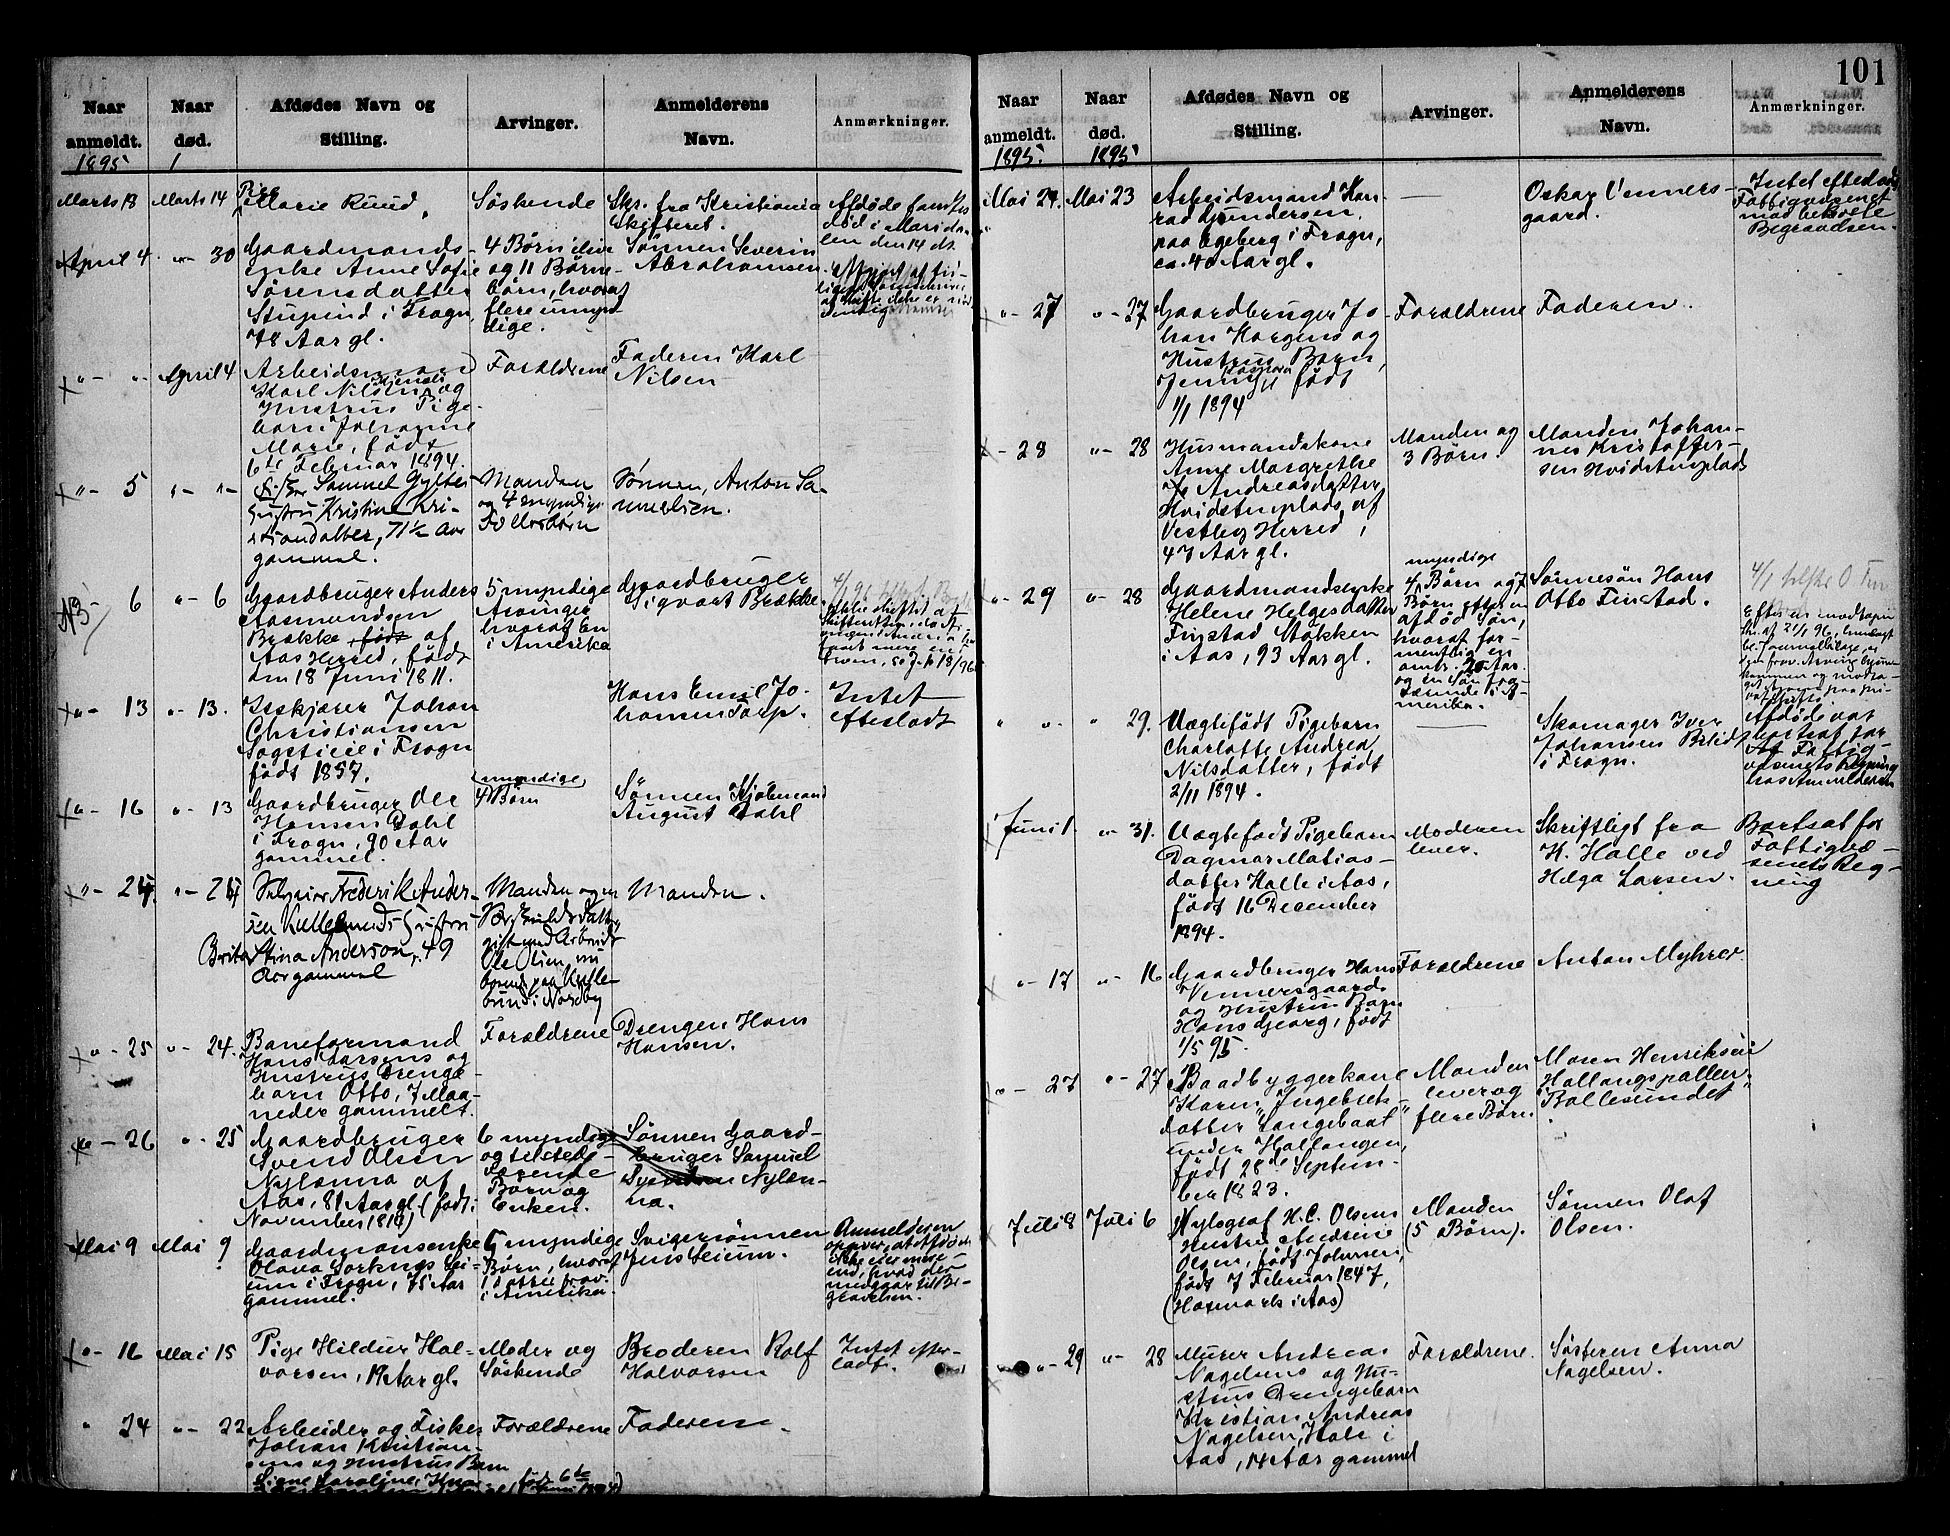 101
Naar anmeldt. 1895
Naar død.
Afdødes Navn og Stilling.
Arvinger.
Anmelderens Navn.
Anmærkninger.
Marts 18
Marts 14
Pige
Marie Ruud,
Søskende
Skr. fra Kristiania
Skifteret.
Afdøde fandtes
død i Marida-
len den 14 ds.
April 4
" - 30
Gaardmands-
enke Anne Sofie
Sørensdatter
Stupind i Frogn,
78 Aar gl.
4 Børn
og 11 Børne-
børn, hvoraf
flere umyn-
dige.
Sønnen Severin
Abrahamsen
" - "
April 4
Arbeidsmand
Karl Nilsens og
Hustrus Pige-
barn Johanne
Marie, født
6te Februar 1894.
Forældrene
Faderen Karl
Nilsen
" - 5
" - "
Samuel
Hustru Kristine Kri-
stiansdatter, 71½ Aar
gammel.
Manden
og 4 myndige
Fællesbørn
Sønnen, Anton Sa-
muelsen.
" 6
" - 6
Gaardbruger Anders
Aasmundsen
Brække, født af
Aas Herred, født
den 18 Juni 1811.
5 myndige
Arvinger
hvoraf En
i Amerika
Gaardbruger
Sigvart Brække.
" - 13
" - 13.
Isskjærer Johan
Christiansen
i Frogn
født 1857.
Hans Emil Jo-
hansen Torp.
Intet
efterladt
" - 16
" - 13
Gaardbruger Ole
Hansen Dahl
i Frogn, 90 Aar
gammel.
myndige
4 Børn
Sønnen Kjøbmand
August Dahl
" - 24
" - 24
Frederik Ander-
sen Hustru
Brita Stina Anderson, 49
Aar gammel
Manden og en
gift med Arbeids
Ole Olsen, nu
i Nordby
Manden.
" - 25
" - 24.
Baneformand
Hans Larsens og
Hustrus Drenge-
barn Otto, 7 Maa-
neder gammelt.
Forældrene
Drengen Hans
Hansen.
" - 26
" - 25
Gaardbruger
Svend Olsen
Nylænna af
Aas, 81 Aar gl. (født
November 1814)
6 myndige
og tilstede-
værende
Børn og
Enken.
Sønnen Gaard-
bruger Samuel
Svendsen Nylæn-
na.
Mai 9
Mai 9
Gaardmandsenke
Olava
i Frogn, 75 Aar
gammel.
5 myndige
Børn, hvoraf
1 Datter frav.
i Amerika.
Svigersønnen
Jens Seium.
Anmelderen
opgiver, at Afdøde
ikke eier mere
end, hvad der
medgaar til Be-
gravelsen.
" - 16
Mai 15
Pige Hildur Hal-
vorsen, 19 Aar gl.
Moder og
Søskende
Broderen Rolf
Halvorsen
Intet efter-
ladt.
" 24
" - 22
Arbeider og Fisker
Johan Kristian-
sens og Hustrus Barn
Signe Karoline,
Forældrene
Faderen.
Naar anmeldt. 1895.
Naar død. 1895
Afdødes Navn og Stilling.
Arvinger.
Anmelderens Navn.
Anmærkninger.
Mai 24.
Mai 23
Arbeidsmand Kon-
rad Gundersen
paa Egeberg i Frogn,
ca. 40 Aar gl.
Oskar Venners-
gaard.
Intet efterladt
Fattigvæsenet
maa bekoste
Begravelsen.
" - 27
" - 27
Gaardbruger Jo-
han Horgens og
Hustrus Barn,
Jenny Kaspara født
1/1 1894
Forældrene
Faderen.
- 28
" - 28
Husmandskone
Anne Margrethe
Andreasdatter
Hvidstenplads af
Vestby Herred,
47 Aar gl.
Manden og
3 Børn.
Manden Johan-
nes Kristoffer-
sen Hvidstenplads
" - 29
" - 28
Gaardmandsenke
Helene Helgesdatter
Finstad Stokken
i Aas, 93 Aar gl.
myndige
4 Børn og 7
Børn efter en
afdød Søn,
hvoraf for-
mentlig en
omtr. 20 Aar
og en Søn fra-
værende i A-
merika.
Sønnesøn Hans
Otto Finstad.
" "
" 29.
Uægtefødt Pigebarn
Charlotte Andrea
Nilsdatter, født
2/11 1894.
Skomager Iver
Johansen
i Frogn.
Afdøde var
bortsat for
Fattig-
væsenets Regning
hos Anmelderen
Juni 1
" - 31.
Uægtefødt Pigebarn
Dagmar Matias-
datter Halle i Aas,
født 16 December
1894.
Moderen
lever.
Skriftligt fra
H. Halle ved
Helga Larsen.
Bortsat for
Fattigvæ-
senets Reg-
ning
" - 17
" - 16
Gaardbruger Hans
Vennersgaards
og Hustrus Barn
Hans Georg, født
1/5 95.
Forældrene
Anton Myhrer.
" - 27
" - 27
Baadbyggerkone
Karen Ingebrets-
datter Langebaat
under Hallangen,
født 28de Septem-
ber 1823.
Manden
lever og
flere Børn.
Maren Henriksen
Hallangspollen,
Ballesundet
Juli 8
Juli 6
H. C. Olsens
Hustru Andrine
Olsen, født Johnsen,
født 7 Februar 1847,
( i Aas)
Manden
(5 Børn).
Sønnen Olaf
Olsen.
" - 29
" - 28
Murer Andreas
Nagelsens og Hu-
strus Drengebarn
Kristian Andreas
Nagelsen, i
Aas, 14 Aar gammel
Forældrene.
Søsteren Anna
Nagelsen.